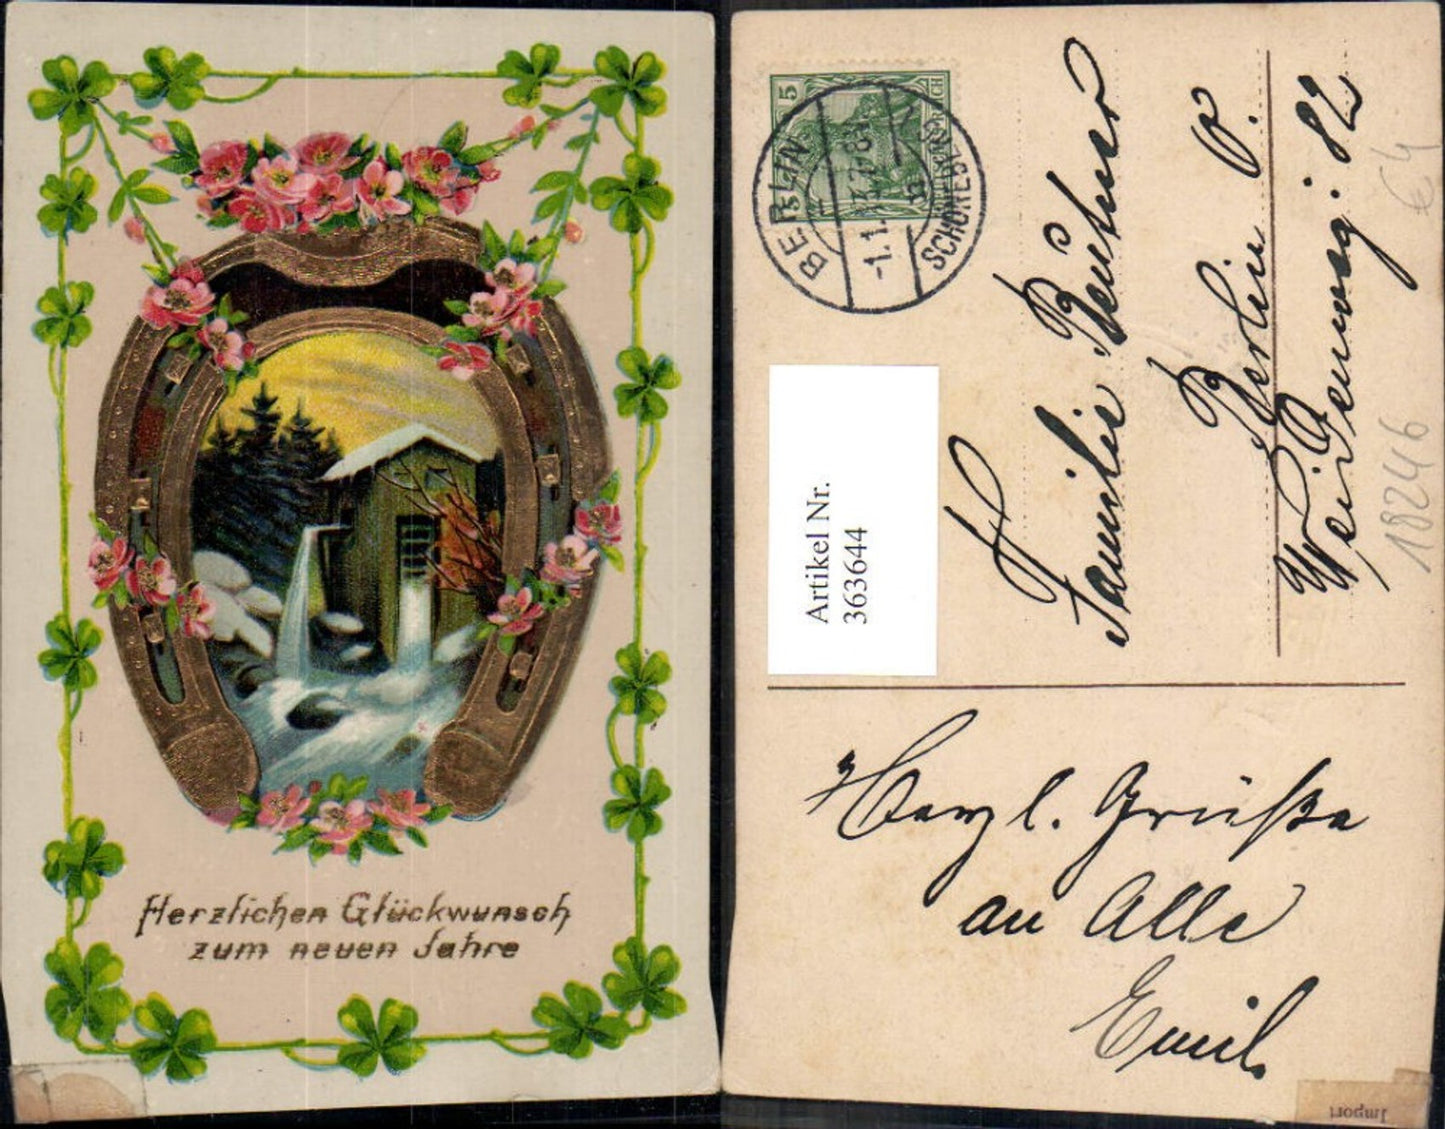 Herzlichen Glückwunsch
zum neuen Jahre
5
BERLIN
SCHÖNEBERG
-1.1.
Familie
Berlin W.
82
€ 4
18246
Artikel Nr.
363644
Herzl. Grüße
an Alle
Emil.
Import